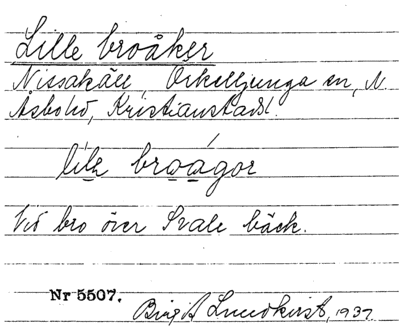 Lille broåker
Nissakäll Örkelljunga sn, N.
Åsbo hd, Kristianstads l.
lila broagor
Vid bro över Svale bäck.
Nr 5507.
Birgit Lundkvist, 1937.